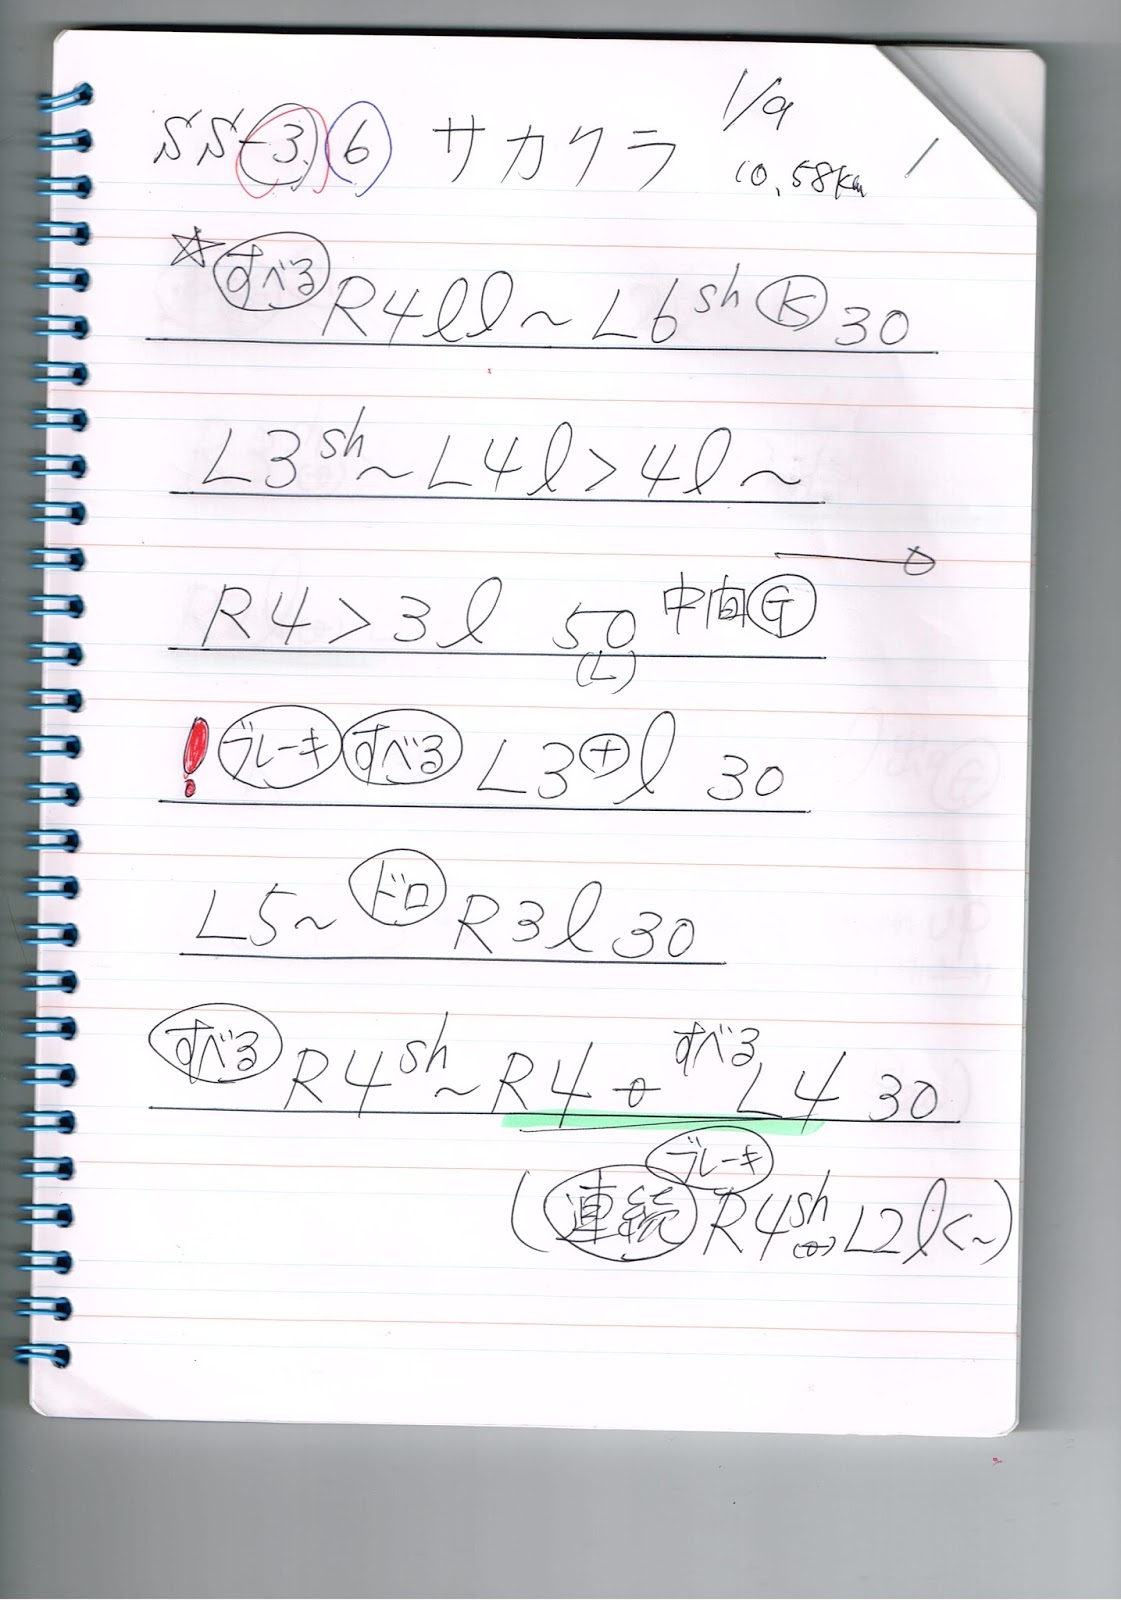 SS-3 6 サカクラ 1/9
10.58km
☆ すべる R4ll〜L6sh K 30
L3sh〜L4l>4l〜
R4>3l 50 中間 G
(L)
! ブレーキ すべる L3+l 30
L5〜 ドロ R3l 30
すべる R4sh〜R4 すべる L4 30
ブレーキ
(連続 R4sh L2l<〜)